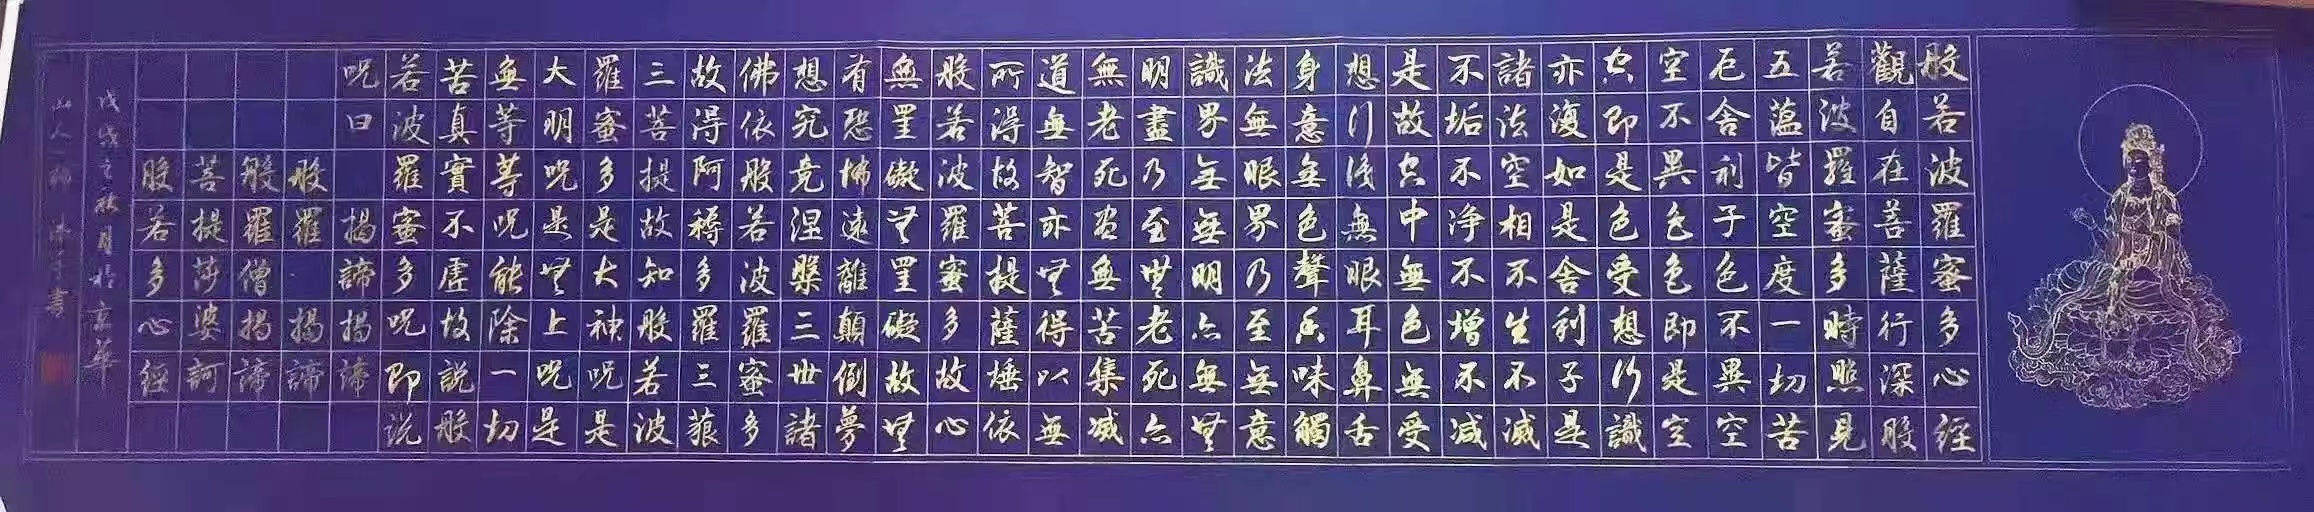 般若波羅蜜多心經
觀自在菩薩行深般
若波羅蜜多時照見
五蘊皆空度一切苦
厄舍利子色不異空
空不異色色即是空
空即是色受想行識
亦復如是舍利子是
諸法空相不生不滅
不垢不淨不增不減
是故空中無色無受
想行識無眼耳鼻舌
身意無色聲香味觸
法無眼界乃至無意
識界無無明亦無無
明盡乃至無老死亦
無老死盡無苦集滅
道無智亦無得以無
所得故菩提薩埵依
般若波羅蜜多故心
無罣礙無罣礙故無
有恐怖遠離顛倒夢
想究竟涅槃三世諸
佛依般若波羅蜜多
故得阿耨多羅三藐
三菩提故知般若波
羅蜜多是大神呪是
大明呪是無上呪是
無等等呪能除一切
苦真實不虛故說般
若波羅蜜多呪即説
呪曰 揭諦揭諦
般羅揭諦
般羅僧揭諦
菩提莎婆訶
般若多心經
戊戌之秋月於京華
山人 書